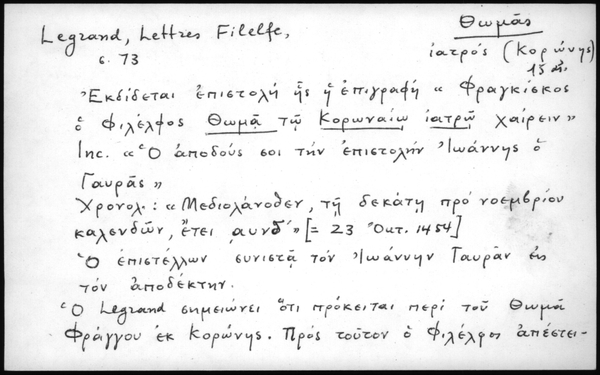 Legrand, Lettres Filelfe,
Θωμᾶς
σ. 73
ἰατρός (Κορώνης)
15 αἰ.
Ἐκδίδεται ἐπιστολή ἧς ἡ ἐπιγραφή « Φραγκίσκος
ὁ Φιλέλφος Θωμᾷ τῷ Κορωναίῳ ἰατρῷ χαίρειν»
Inc. « Ὁ ἀποδούς σοι τήν ἐπιστολήν Ἰωάννης ὁ
Γαυρᾶς »
Χρονολ.: « Μεδιολάνοθεν, τῇ δεκάτῃ πρό νοεμβρίου
καλενδῶν, ἔτει ͵αυνδ´» [= 23 Ὀκτ. 1454]
Ὁ ἐπιστέλλων συνιστᾷ τόν Ἰωάννην Γαυρᾶν εἰς
τόν ἀποδέκτην.
Ὁ Legrand σημειώνει ὅτι πρόκειται περί τοῦ Θωμᾶ
Φράγγου ἐκ Κορώνης. Πρός τοῦτον ὁ Φιλέλφος ἀπέστει-